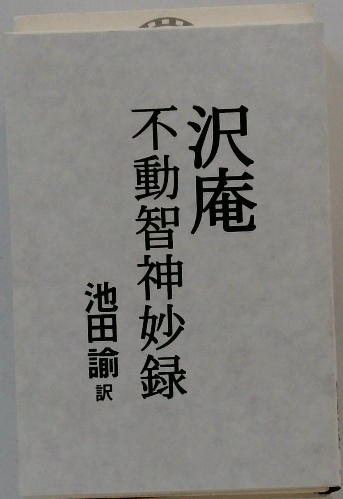 沢庵
不動智神妙録
池田諭訳